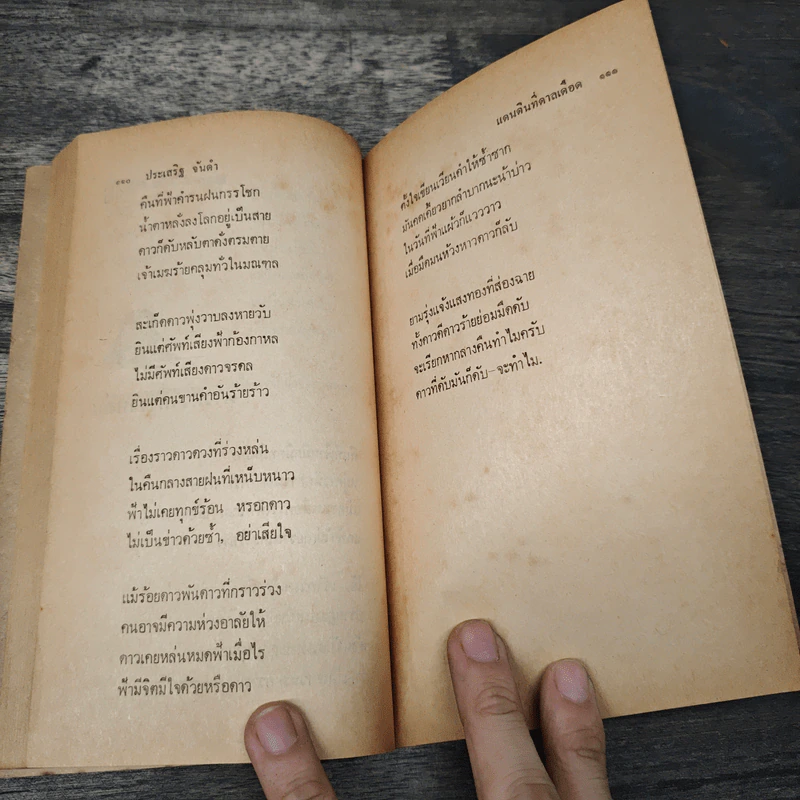 ๑๘๐ ประเสริฐ จันดำ
คืนที่ฟ้าคำรนฝนกรรโชก
น้ำตาหลั่งลงโลกอยู่เป็นสาย
ดาวก็ดับหลับตาดั่งตรมตาย
เจ้าเมฆร้ายคลุมทั่วในมณฑล
สะเก็ดดาวพุ่งวาบลงหายวับ
ยินแต่ศัพท์เสียงฟ้าก้องกาหล
ไม่มีศัพท์เสียงดาวจรดล
ยินแต่คนขานคำอันร้ายร้าว
เรื่องราวดาวดวงที่ร่วงหล่น
ในคืนกลางสายฝนที่เหน็บหนาว
ฟ้าไม่เคยทุกข์ร้อน หรอกดาว
ไม่เป็นข่าวด้วยซ้ำ, อย่าเสียใจ
แม้ร้อยดาวพันดาวที่กราวร่วง
คนอาจมีความห่วงอาลัยให้
ดาวเคยหล่นหมดฟ้าเมื่อไร
ฟ้ามีจิตมีใจด้วยหรือดาว
แดนดินที่ดาลเดือด ๑๘๑
ตั้งใจเขียนเวียนคำให้ซ้ำซาก
มันคดเคี้ยวยากลำบากนะน้าบ่าว
ในวันที่ฟ้าแผ้วก็แวววาว
เมื่อมืดมนห้วงหาวดาวก็ลับ
ยามรุ่งแจ้งแสงทองที่ส่องฉาย
ทั้งดาวดีดาวร้ายย่อมมืดดับ
จะเรียกหากลางคืนทำไมครับ
ดาวที่ดับมันก็ดับ-จะทำไม.